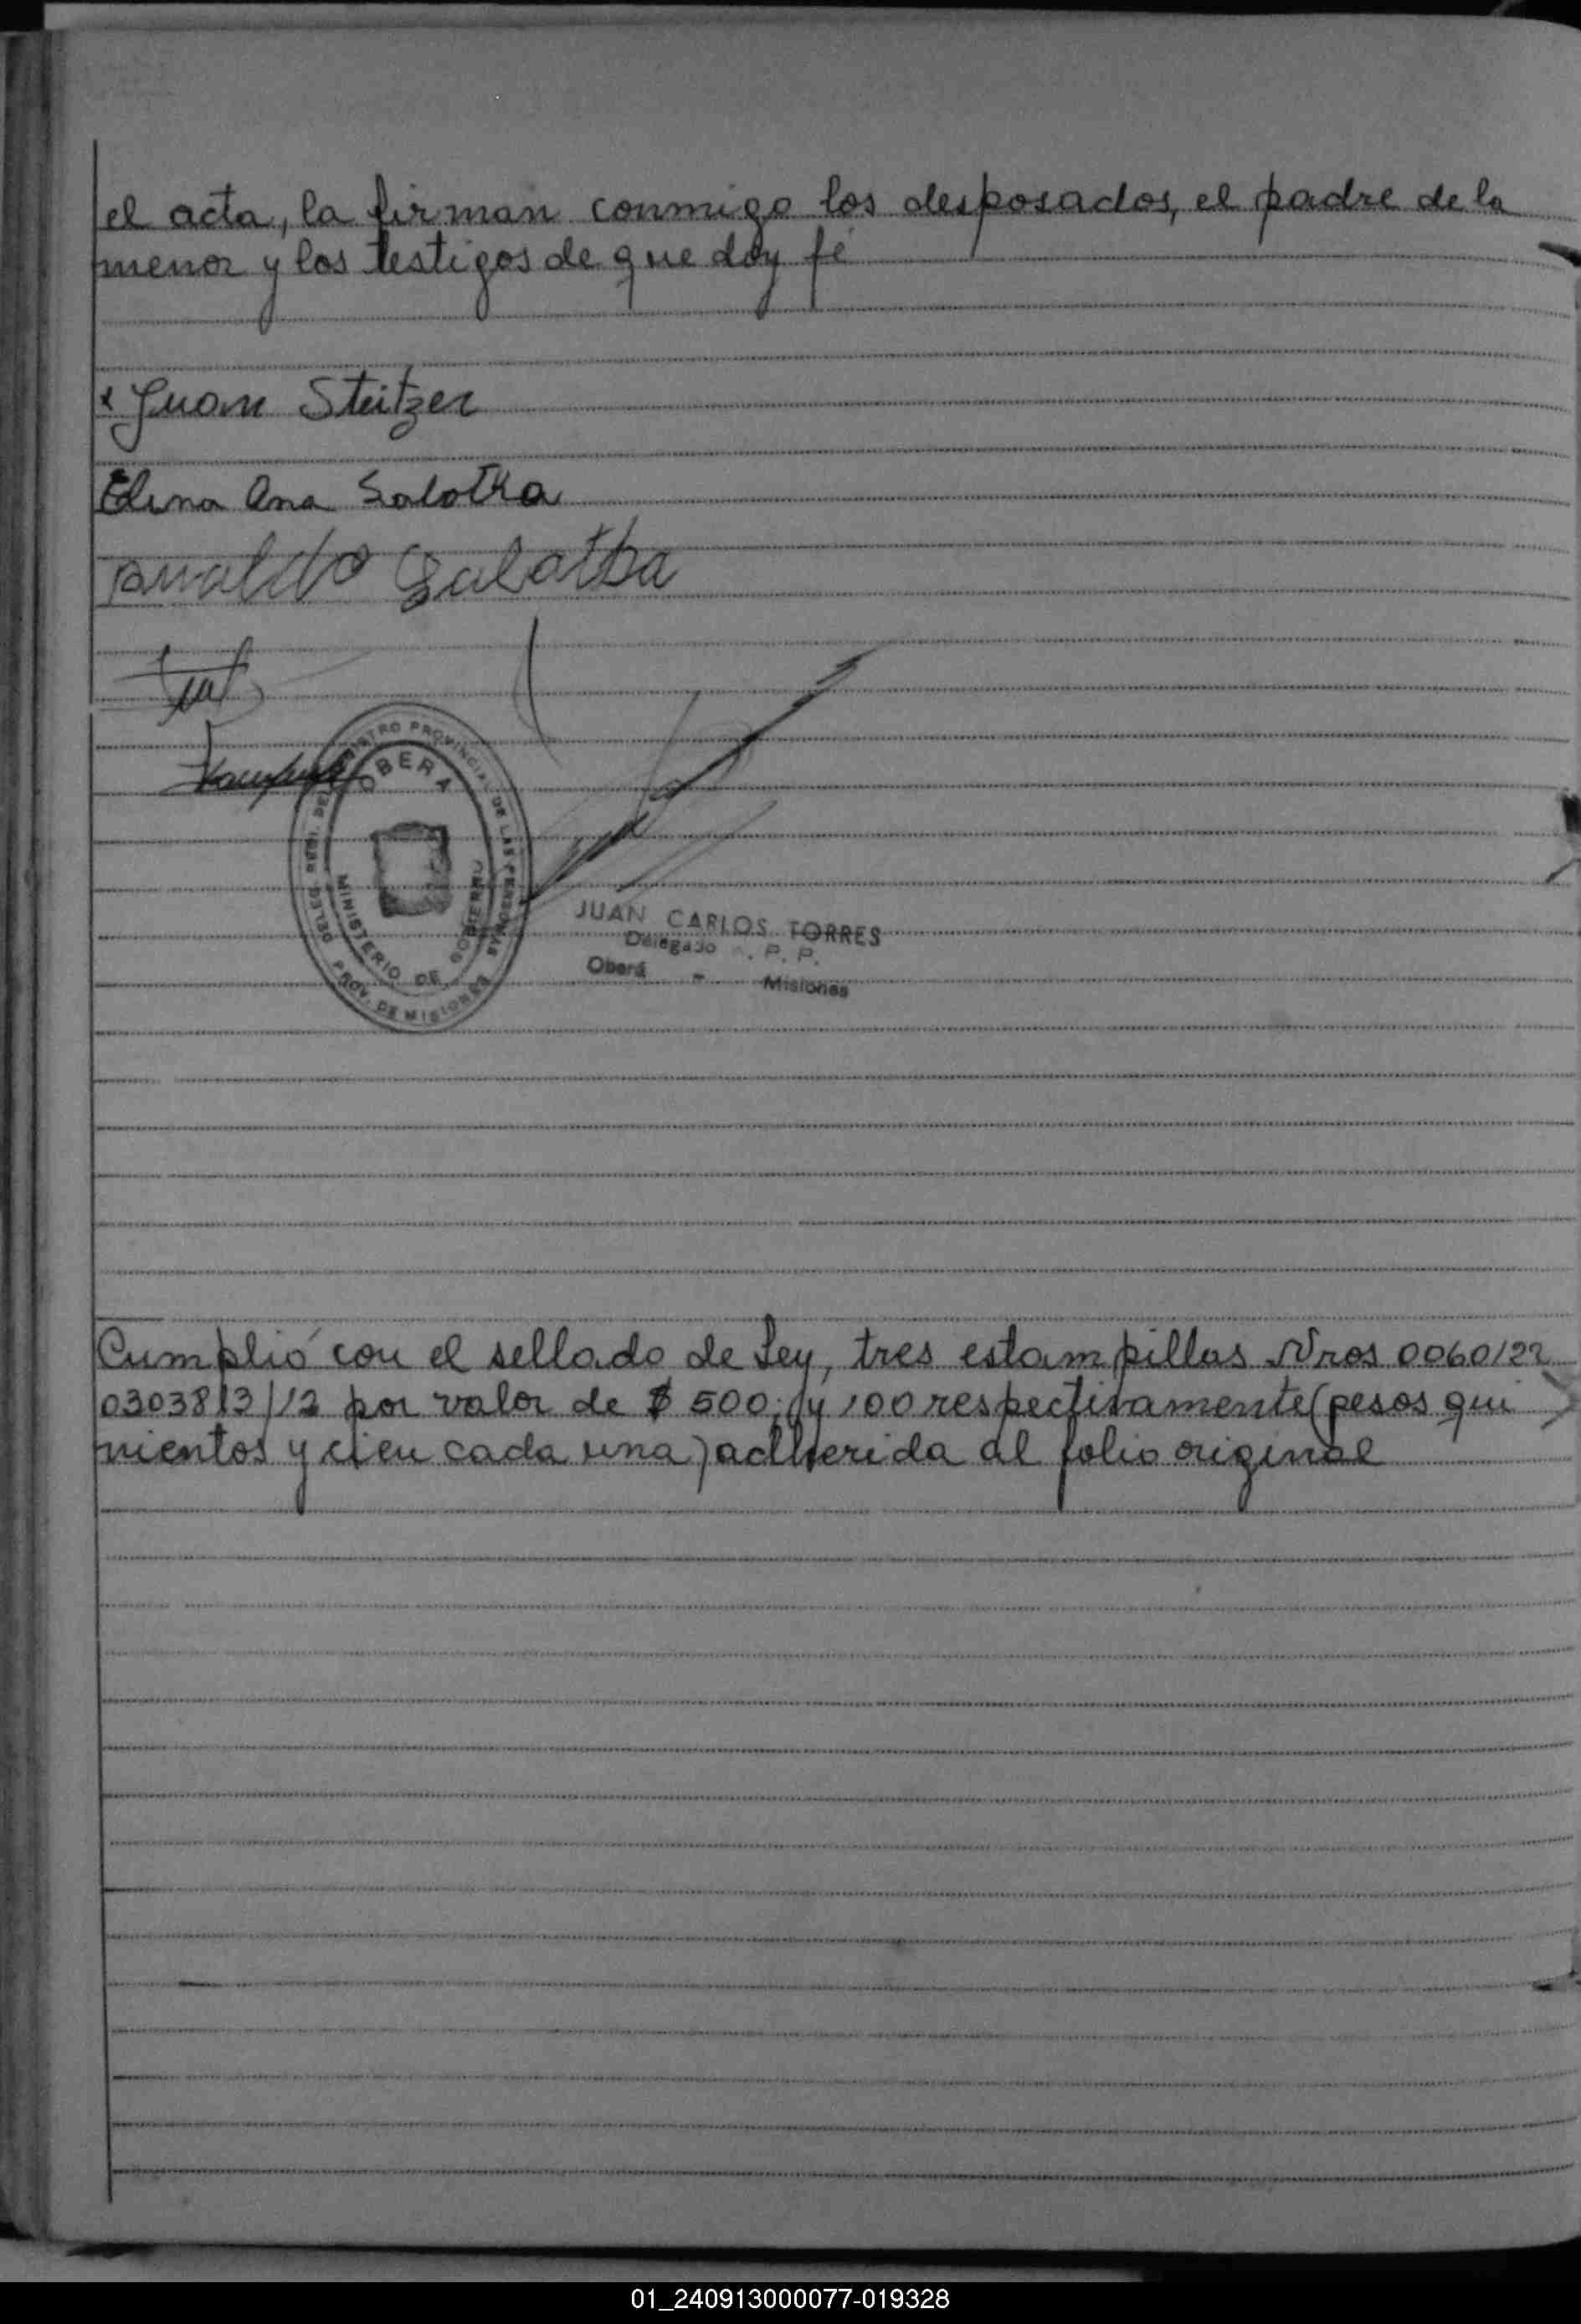 el acta, la firman conmigo los desposados, el padre de la
menor y los testigos de que doy fé
x Juan Steitzer
Elena Ana Salotka
Salatka
REGISTRO PROVINCIAL DE LAS PERSONAS
OBERA
MINISTERIO DE GOBIERNO
PROV. DE MISIONES
JUAN CARLOS TORRES
Delegado R. P. P.
Oberá - Misiones
Cumplió con el sellado de Ley, tres estampillas Nros 0060122
0303813/12 por valor de $ 500; y 100 respectivamente (pesos qui
nientos y cien cada una) adherida al folio original
01_240913000077-019328